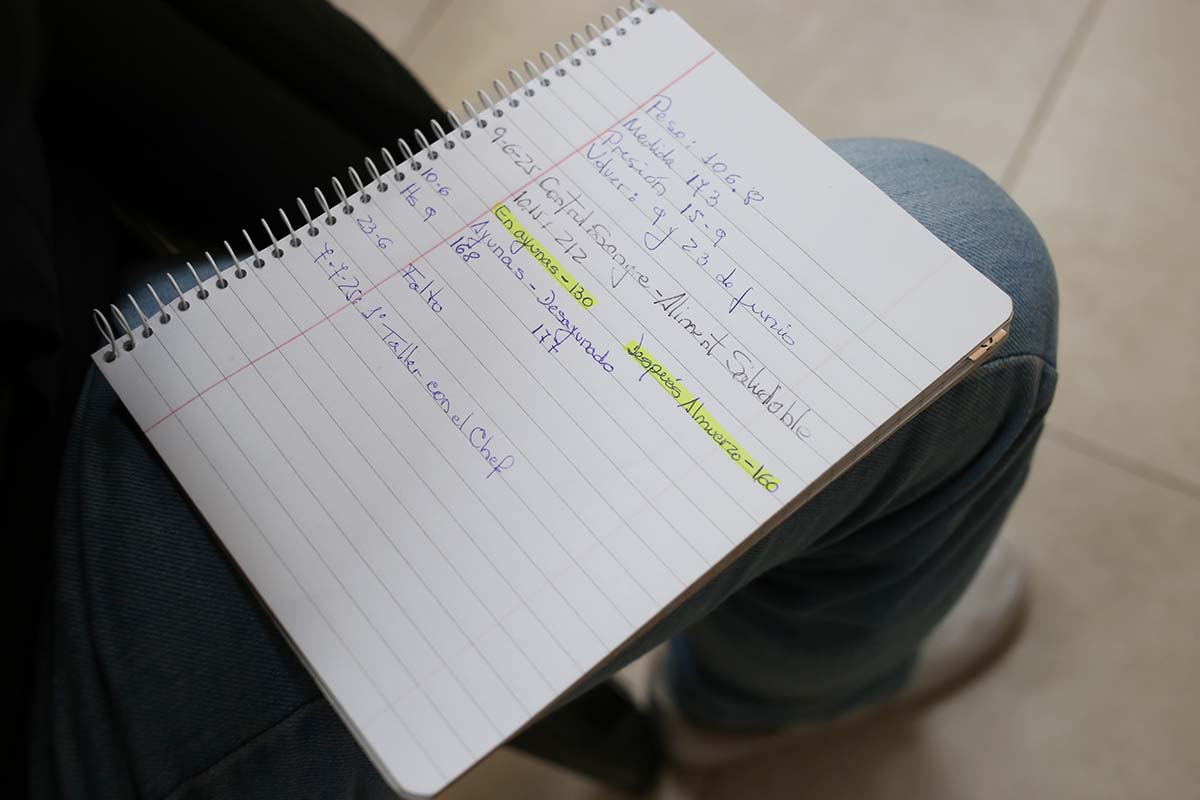 Peso: 106.8
Medida 173
Presión 15-9
Volver: 9 y 23 de junio
9-6-25 Control Sangre - Aliment Saludable
10.15: 212
En ayunas - 130 después Almuerzo - 160
10-6 Ayunas - Desayunado
Hs 9 168 177
23-6 Falto
7-7-25: 1° Taller con el Chef